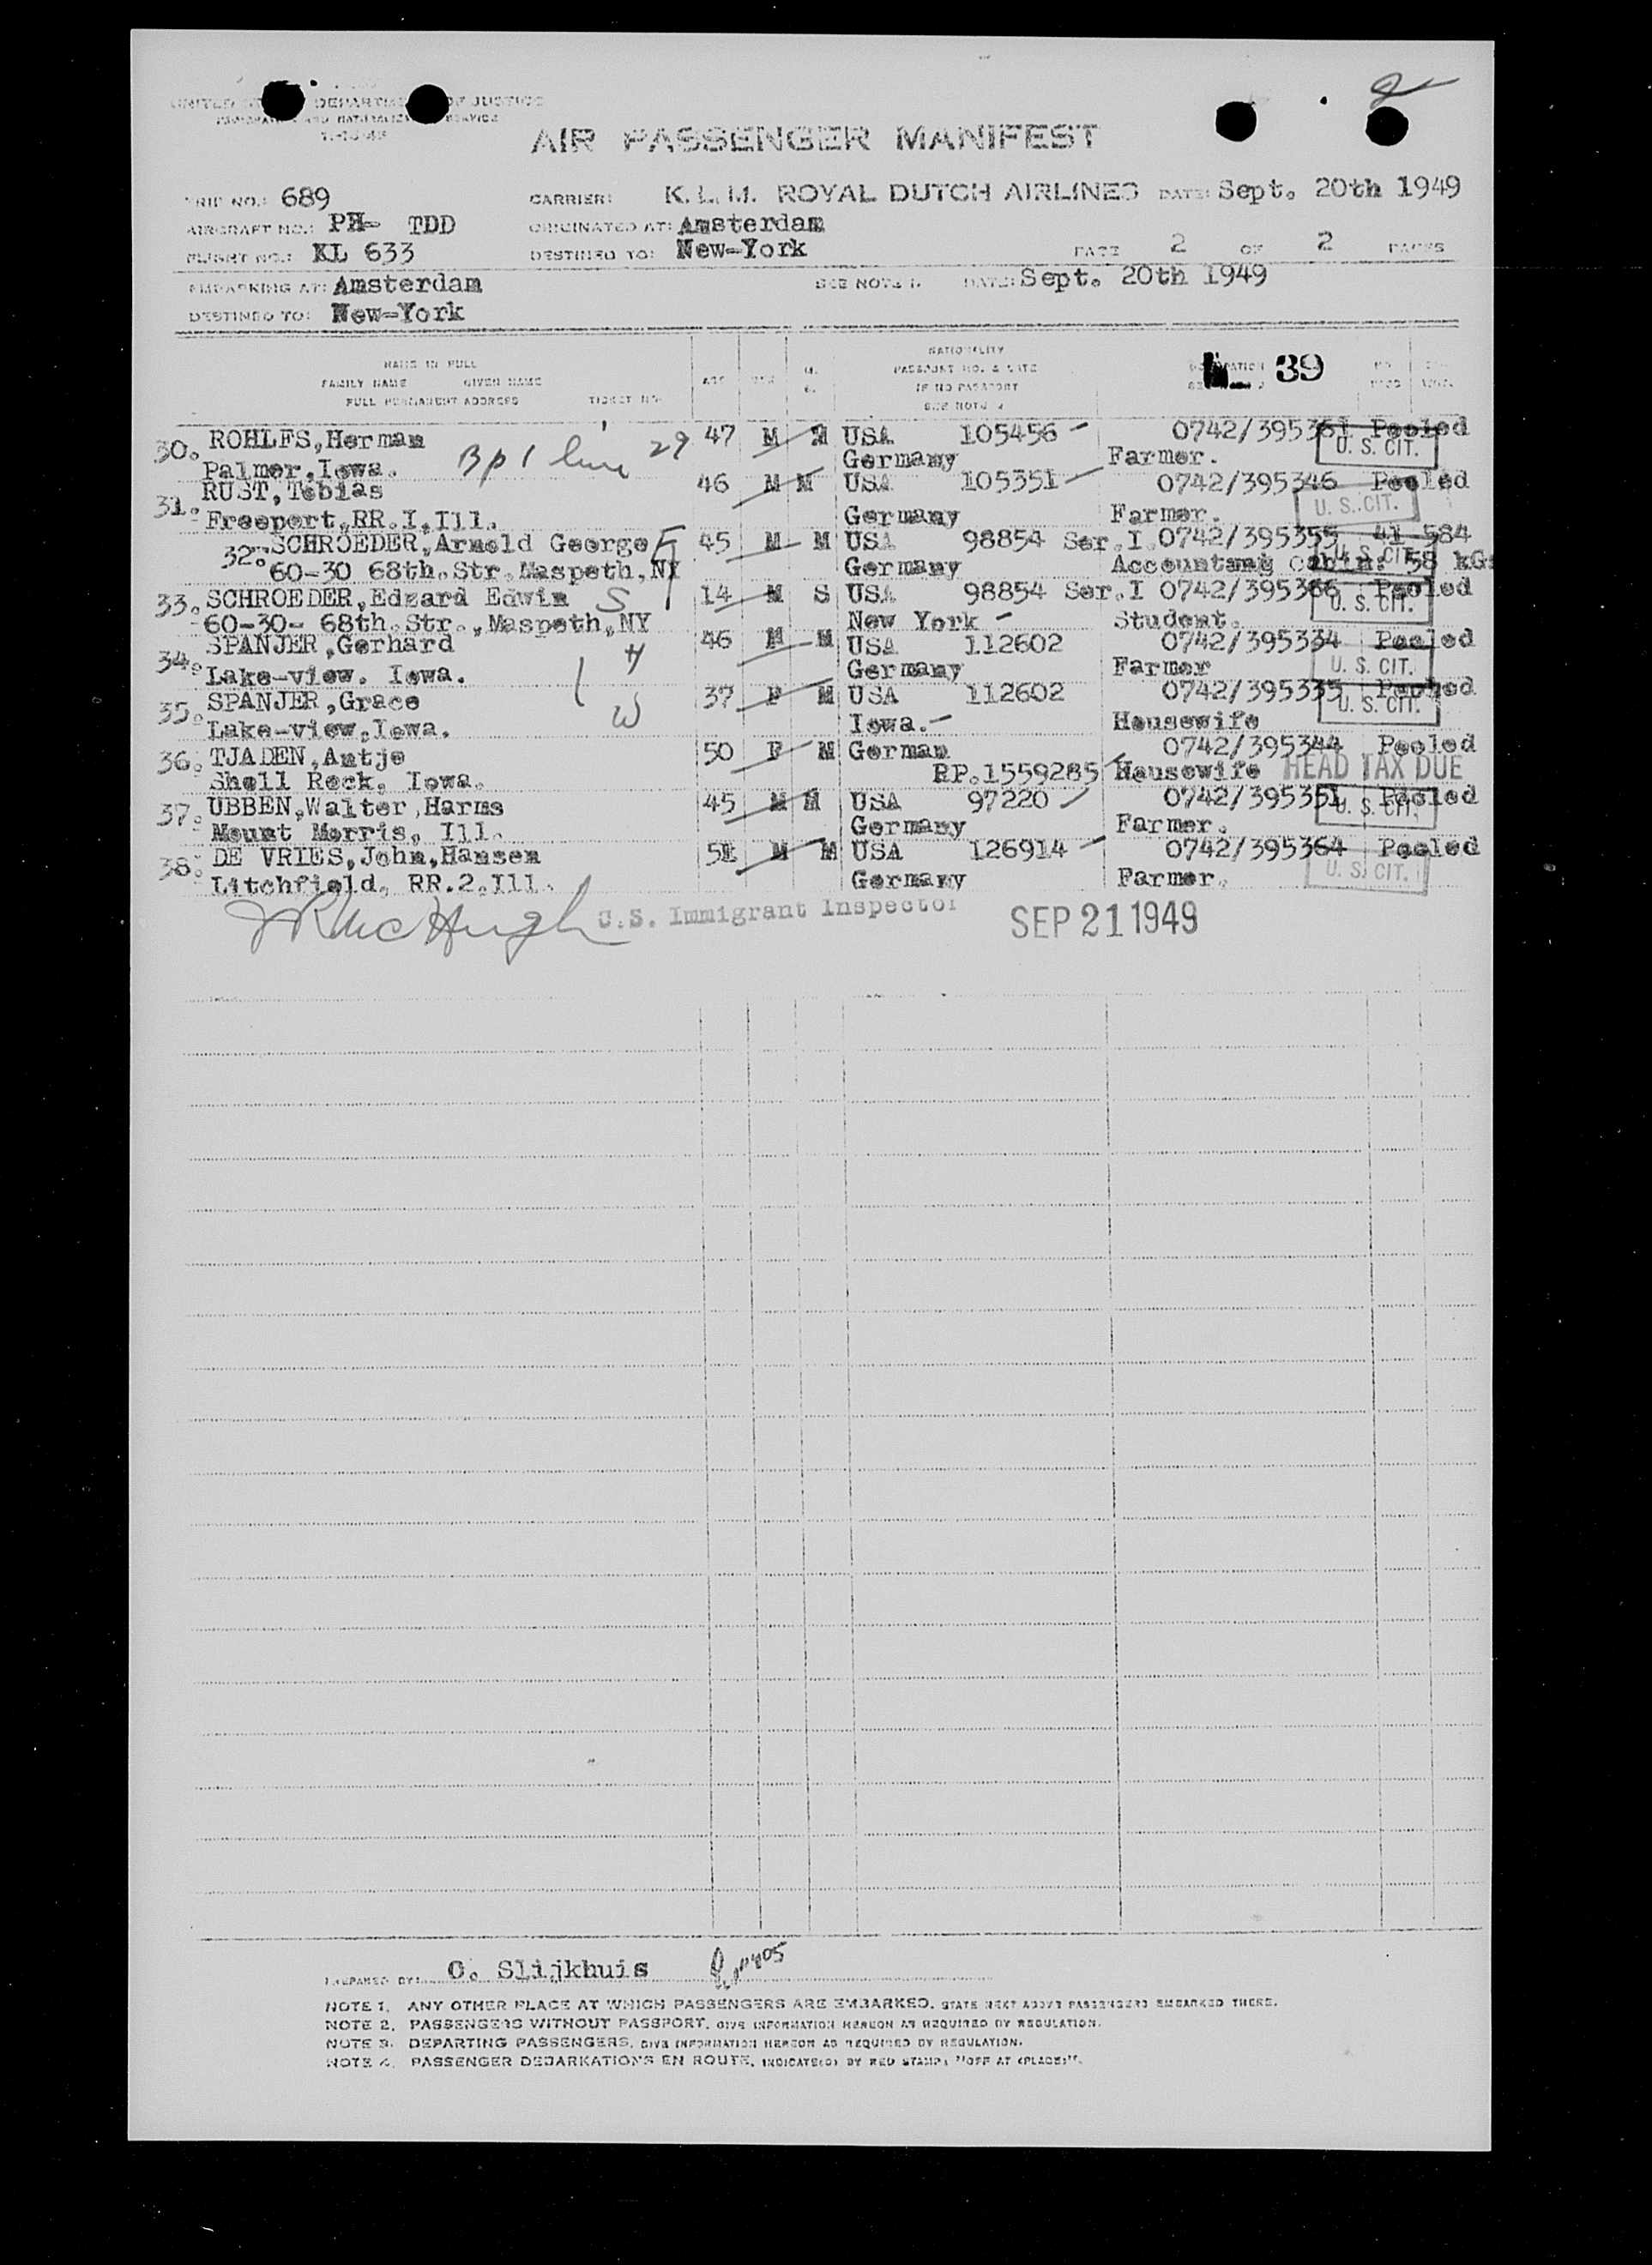 UNITED ST DEPARTM OF JUSTICE
AIR PASSENGER MANIFEST
TRIP NO.: 689 CARRIER: K.L.M. ROYAL DUTCH AIRLINES DATE: Sept. 20th 1949
AIRCRAFT NO.: PH- TDD ORIGINATED AT: Amsterdam
FLIGHT NO.: KL 633 DESTINED TO: New-York PAGE 2 OF 2 PAGES
EMBARKING AT: Amsterdam SEE NOTE 1. DATE: Sept. 20th 1949
DESTINED TO: New-York
NAME IN FULL NATIONALITY
FAMILY NAME GIVEN NAME AGE SEX M. PASSPORT NO. & DATE 39
FULL PERMANENT ADDRESS TICKET NO. IF NO PASSPORT
SEE NOTE 2
30. ROHLFS,Herman 47 M M USA 105456 0742/395361 Pooled
Palmer,Iowa. 29 Germany Farmer. U. S. CIT.
31. RUST,Tobias 46 M M USA 105351 0742/395346 Pooled
Freeport,RR.I.Ill. Germany Farmer. U. S. CIT.
32. SCHROEDER,Arnold George F 45 M M USA 98854 Ser.I 0742/395355 41 584
60-30 68th.Str.Maspeth,NY Germany Accountang U. S. CIT. 58 kGs
33. SCHROEDER,Edzard Edwin S 14 M S USA 98854 Ser.I 0742/395366 Pooled
60-30- 68th.Str.,Maspeth,NY New York Student. U. S. CIT.
34. SPANJER,Gerhard H 46 M M USA 112602 0742/395334 Pooled
Lake-view. Iowa. Germany Farmer U. S. CIT.
35. SPANJER,Grace W 37 F M USA 112602 0742/395335 Pooled
Lake-view,Iowa. Iowa.- Housewife U. S. CIT.
36. TJADEN,Antje 50 F M German 0742/395344 Pooled
Shell Rock, Iowa. RP.1559285 Housewife HEAD TAX DUE
37. UBBEN,Walter,Harms 45 M M USA 97220 0742/395351 Pooled
Mount Morris, Ill. Germany Farmer. U. S. CIT.
38. DE VRIES,John,Hansen 51 M M USA 126914 0742/395364 Pooled
Litchfield, RR.2.Ill. Germany Farmer. U. S. CIT.
U.S. Immigrant Inspector SEP 21 1949
PREPARED BY: C. Slijkhuis
NOTE 1. ANY OTHER PLACE AT WHICH PASSENGERS ARE EMBARKED, STATE NEXT ABOVE PASSENGERS EMBARKED THERE.
NOTE 2. PASSENGERS WITHOUT PASSPORT, GIVE INFORMATION HEREON AS REQUIRED BY REGULATION.
NOTE 3. DEPARTING PASSENGERS, GIVE INFORMATION HEREON AS REQUIRED BY REGULATION.
NOTE 4. PASSENGER DEBARKATIONS EN ROUTE, INDICATE(D) BY RED STAMP: "OFF AT (PLACE)".